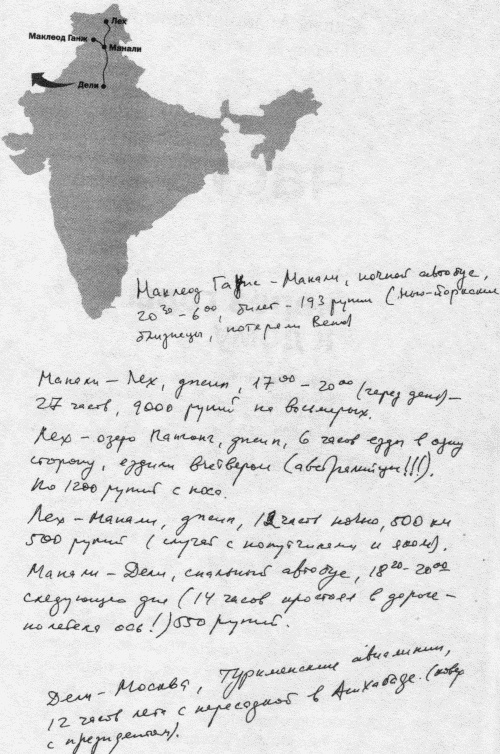 Лех
Маклеод Ганж
Манали
Дели
Маклеод Ганж – Манали, ночной автобус,
20³⁰ – 6⁰⁰, билет – 193 рупии (Нью-Йоркские
близнецы, потеряли Веню)
Манали – Лех, джип, 17⁰⁰ – 20⁰⁰ (через день) –
27 часов, 9000 рупий на восьмерых.
Лех – озеро джип, 6 часов езды в одну
сторону, ездили вчетвером (австралийцы!!!).
По 1200 рупий с носа.
Лех – Манали, джип, 12 часов ночью, 500 км
500 рупий (случай с попутчиками и яком).
Манали – Дели, спальный автобус, 18²⁰ – 20⁰⁰
следующего дня (14 часов простоя в дороге –
полетела ось!) 550 рупий.
Дели – Москва, Туркменские авиалинии,
12 часов лета с пересадкой в Ашхабаде. (ковёр
с президентом).